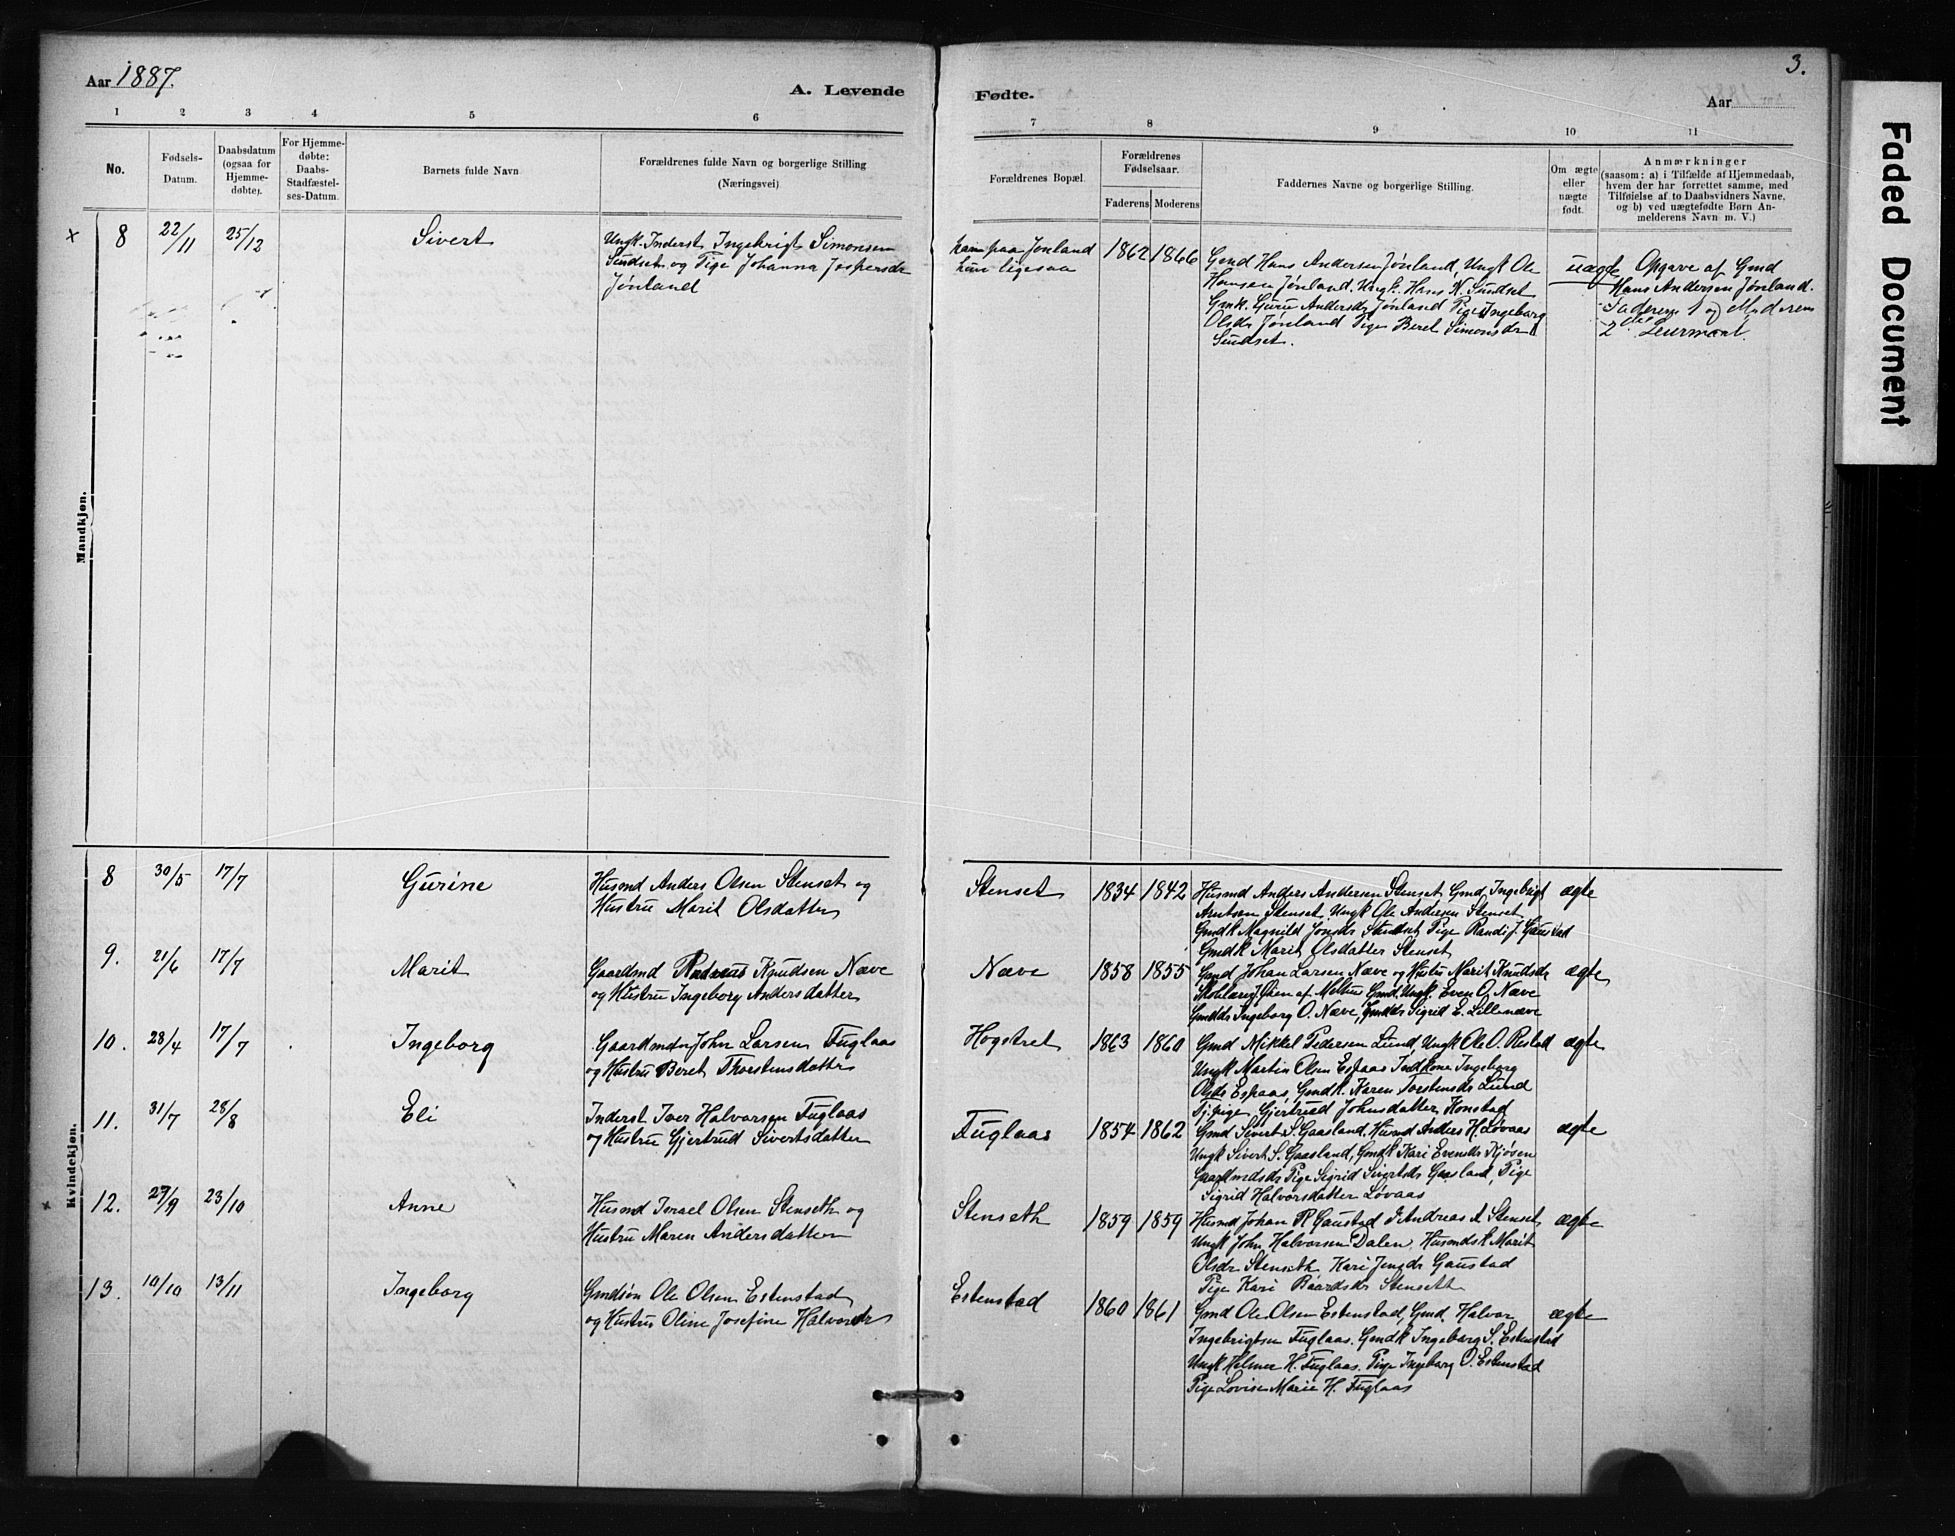 Aar 1887.
A. Levende
Fødte.
Aar
3.
Faded Document
1 2 3 4 5 6
7 8 9 10 11
No.
Fødsels-
Datum.
Daabsdatum
(ogsaa for
Hjemme-
døbte).
For Hjemme-
døbte:
Daabs-
Stadfæstel-
ses-Datum.
Barnets fulde Navn
Forældrenes fulde Navn og borgerlige Stilling
(Næringsvei).
Forældrenes Bopæl.
Forældrenes
Fødselsaar.
Faderens Moderens
Faddernes Navne og borgerlige Stilling.
Om ægte
eller
uægte
født.
Anmærkninger
(saasom: a) i Tilfælde af Hjemmedaab,
hvem der har forrettet samme, med
Tilføielse af to Daabsvidners Navne,
og b) ved uægtefødte Børn An-
melderens Navn m. V.)
Mandkjøn.
x 8 22/11 25/12 Sivert
Ungk. Inderst Ingebrigt Simonsen
Sundset og Pige Johanna Jespersdr
Jønland
ham paa Jønland
hun ligesaa
1862 1866
Gmd Hans Andersen Jønland, Ungk Ole
Hansen Jønland. Ungk. Hans N. Sundset
Gmk. Guru Andersdr Jønland Pige Ingeborg
Olsdr Jønland Pige Beret Simonsdr
Sundset.
uægte
Opgave af Gmd
Hans Andersen Jønland.
Faderens 1 og Moderens
2det Leiermaal.
Kvindekjøn.
8 30/5 17/7 Gurine
Husmd Anders Olsen Stenset og
Hustru Marit Olsdatter
Stenset 1834 1842
Husmd Anders Andersen Stenset Gmd Ingebrigt
Arntsen Stenset, Ungk Ole Andersen Stenset
Gmdk Magnild Jonsdr Stenset Pige Randi J. Gaustad
Gmdk Marit Olsdatter Stenset
ægte
9. 21/6 17/7 Marit
Gaardmd Knudsen Næve
og Hustru Ingeborg Andersdatter
Næve 1858 1855
Gmd Johan Larsen Næve og Hustru Marit Knudsdr
Gmd. Ungk. Even O. Næve
Gmddr Ingeborg O. Næve, Gmddr Sigrid E. Lillenæve
ægte
10. 28/4 17/7 Ingeborg
Gaardmdsn John Larsen Fuglaas
og Hustru Beret Thorstensdatter
Hogstret 1863 1860
Gmd Mikkel Pedersen Lund Ungk Ole O. Restad
Ungk Martin Olsen Espaas Indkone Ingeborg
Olsdr Espaas, Gmdk. Karen Torstensdr Lund
Tj.pige, Gjertrud Johnsdatter Konstad
ægte
11. 31/7 28/8 Eli
Inderst Iver Halvorsen Fuglaas
og Hustru Gjertrud Sivertsdatter
Fuglaas 1854 1862
Gmd Sivert S. Gaasland, Husmd Anders H. Løvaas
Ungk Sivert S. Gaasland, Gmdk Kari Evensdr Kjøsen
Gaardmdsdr Pige Sigrid Sivertsdr Gaasland, Pige
Sigrid Halvorsdatter Løvaas
ægte
x 12. 29/9 23/10 Anne
Husmd Israel Olsen Stenseth og
Hustru Maren Andersdatter
Stenseth 1859 1859
Husmd Johan P. Gaustad, Andreas A Stenset
Ungk John Halvorsen Dalen, Husmdsk Marit
Olsdr Stenseth Kari Jensdr Gaustad
Pige Kari Baardsdr Stenseth
ægte
13. 10/10 13/11 Ingeborg
Gmdsøn Ole Olsen Estenstad
og Hustru Oline Josefine Halvorsdr
Estenstad 1860 1861
Gmd Ole Olsen Estenstad, Gmd Halvor
Ingebrigtsen Fuglaas. Gmdk Ingeborg S. Estenstad
Ungk Helmer H. Fuglaas. Pige Ingeborg O. Estenstad
Pige Lovise Marie H. Fuglaas
ægte